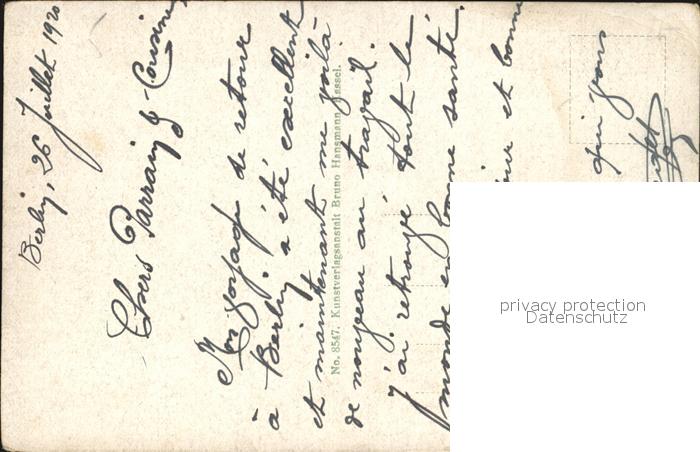 Berlin, 26 Juillet 1920
Chers Parrain & Cousine,
Mon voyage de retour
à Berlin a été excellent
et maintenant me voilà
de nouveau au travail.
J'ai retrouvé tout le
monde en bonne santé.
et bonne
qui vous
No. 8547. Kunstverlagsanstalt Bruno Hansmann, Cassel.
privacy protection
Datenschutz